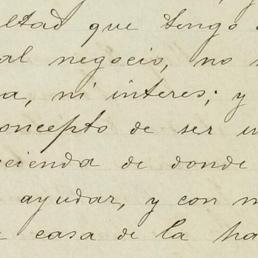 ultad que tengo
al negocio, no
a, ni interes; y
concepto de ser
cienda de donde
ayudar, y con
casa de la ha